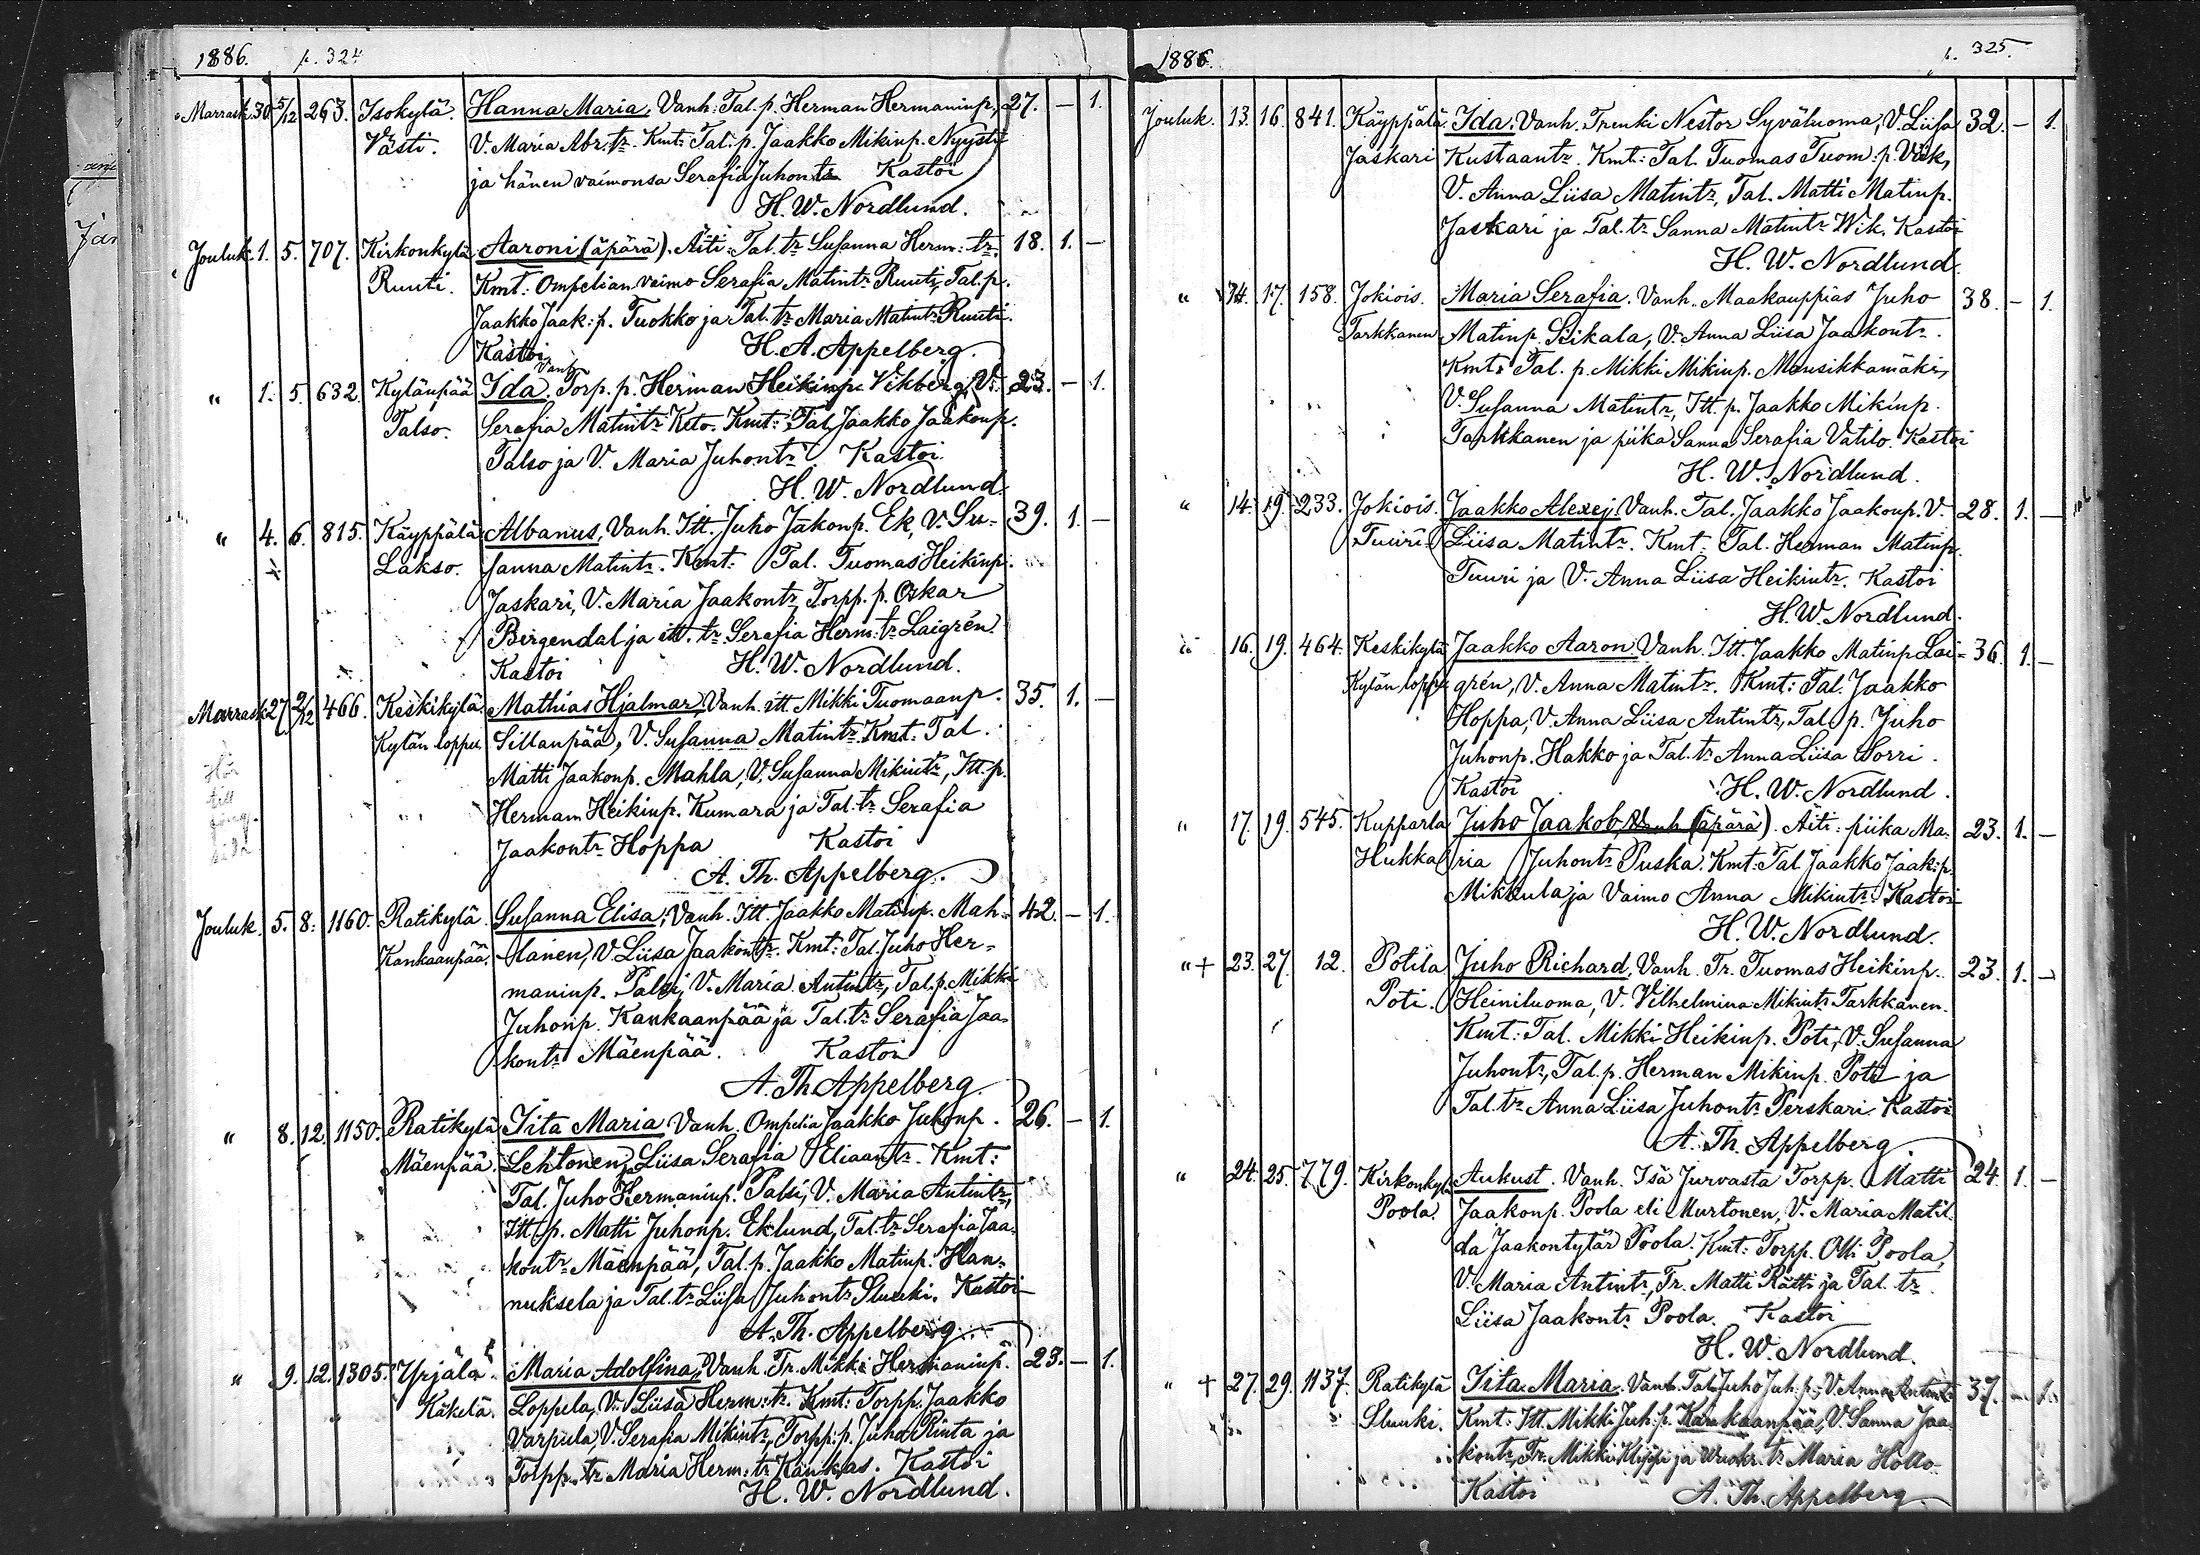 1886. p. 324
Marrask. 30 5/12 263. Isokylä. Hanna Maria, Vanh: Tal. p. Herman Hermaninp., 27. — 1.
Västi. V. Maria Abr. tr. Kmt: Tal. p. Jaakko Mikinp. Nyysti
ja hänen vaimonsa Serafia Juhontr. Kastoi
H. W. Nordlund.
Jouluk. 1. 5. 707. Kirkonkylä Aaroni (äpärä). Äiti: Tal. tr Susanna Herm: tr. 18. 1. —
Ruuti. Kmt: Ompelian vaimo Serafia Matintr Ruuti, Tal. p.
Jaakko Jaak: p. Tuokko ja Tal. tr Maria Matintr Ruuti.
Kastoi H. A. Appelberg.
Vanh.
" 1. 5. 632. Kylänpää Ida, Torp. p. Herman Heikinp. Vikberg, V. 23. — 1.
Talso. Serafia Matintr Keto. Kmt: Tal. Jaakko Jaakonp.
Talso ja V. Maria Juhontr. Kastoi
H. W. Nordlund.
" 4. 6. 815. Käyppälä Albanus, Vanh. Itt. Juho Jakonp. Ek, V. Su- 39. 1. —
Lakso. sanna Matintr. Kmt: Tal. Tuomas Heikinp.
Jaskari, V. Maria Jaakontr, Torpp. p. Oskar
Birgendal ja itt. tr Serafia Herm: tr Laigrén.
Kastoi H. W. Nordlund.
Marrask. 27 2/12 466. Keskikylä. Mathias Hjalmar, Vanh. itt. Mikki Tuomaanp. 35. 1. —
Kylän loppu Sillanpää, V. Susanna Matintr. Kmt: Tal.
Matti Jaakonp. Mahla, V. Susanna Mikintr, Itt. p.
Hermam Heikinp. Kumara ja Tal. tr Serafia
Jaakontr Hoppa Kastoi
A. Th. Appelberg.
Jouluk. 5. 8. 1160. Ratikylä. Susanna Elisa, Vanh. Itt. Jaakko Matinp. Mah- 42. — 1.
Kankaanpää. lanen, V. Liisa Jaakontr. Kmt: Tal. Juho Her-
maninp. Palsi, V. Maria Antintr, Tal. p. Mikki
Juhonp. Kankaanpää ja Tal. tr Serafia Jaa-
kontr Mäenpää. Kastoi
A. Th. Appelberg.
" 8. 12. 1150. Ratikylä Iita Maria Vanh. Ompelia Jaakko Juhonp. 26. — 1.
Mäenpää. Lehtonen, Liisa Serafia Eliaantr. Kmt:
Tal. Juho Hermaninp. Palsi, V. Maria Antintr,
Itt. p. Matti Juhonp. Eklund, Tal. tr Serafia Jaa-
kontr Mäenpää, Tal. p. Jaakko Matinp. Han-
nuksela ja Tal. tr Liisa Juhontr Sluuki. Kastoi
A. Th. Appelberg.
" 9. 12. 1305. Yrjälä Maria Adolfina, Vanh. Tr. Mikki Hermaninp. 23. — 1.
Käkelä. Loppela, V. Liisa Herm: tr. Kmt: Torpp. Jaakko
Varpula, V. Serafia Mikintr, Torpp: p. Juho Rinta ja
Torpp. tr Maria Herm: tr Kankas. Kastoi
H. W. Nordlund.
1886. p. 325.
Jouluk. 13. 16. 841. Käyppälä Ida. Vanh. Trenki Nestor Syväluoma, V. Liisa 32. — 1.
Jaskari Kustaantr. Kmt: Tal. Tuomas Tuom: p. Viik,
V. Anna Liisa Matintr, Tal. Matti Matinp.
Jaskari ja Tal. tr Sanna Matintr Wik. Kastoi
H. W. Nordlund.
" 14. 17. 158. Jokiois. Maria Serafia. Vanh. Maakauppias Juho 38. — 1.
Tarkkanen Matinp. Siikala, V. Anna Liisa Jaakontr.
Kmt: Tal. p. Mikki Mikinp. Mansikkamäki,
V. Susanna Matintr, Itt. p. Jaakko Mikinp.
Tarkkanen ja piika Sanna Serafia Vatilo. Kastoi
H. W. Nordlund.
" 14. 19. 233. Jokiois. Jaakko Alexej Vanh. Tal. Jaakko Jaakonp. V. 28. 1. —
Tuuri Liisa Matintr. Kmt: Tal. Herman Matinp.
Tuuri ja V. Anna Liisa Heikintr. Kastoi
H. W. Nordlund.
" 16. 19. 464. Keskikylä Jaakko Aaron Vanh. Itt. Jaakko Matinp. Lai- 36. 1. —
Kylän loppu grén, V. Anna Matintr. Kmt: Tal. Jaakko
Hoppa, V. Anna Liisa Antintr, Tal. p. Juho
Juhonp. Hakko ja Tal. tr Anna Liisa Sorri.
Kastoi H. W. Nordlund.
" 17. 19. 545. Kupparla Juho Jaakob, Vanh (äpärä). Äiti: piika Ma- 23. 1. —
Hukka ria Juhontr Puska. Kmt: Tal. Jaakko Jaak: p.
Mikkula ja Vaimo Anna Mikintr. Kastoi
H. W. Nordlund.
" + 23. 27. 12. Potila Juho Richard, Vanh. Tr. Tuomas Heikinp. 23. 1. —
Poti. Heiniluoma, V. Vilhelmina Mikintr Tarkkanen.
Kmt: Tal. Mikki Heikinp. Poti, V. Susanna
Juhontr, Tal. p. Herman Mikinp. Poti ja
Tal. tr Anna Liisa Juhontr Perskari. Kastoi
A. Th. Appelberg.
" 24. 25. 779. Kirkonkylä Aukust. Vanh. Isä Jurvasta Torpp. Matti 24. 1. —
Poola. Jaakonp. Poola eli Murtonen, V. Maria Matil-
da Jaakontytär Poola. Kmt: Torpp. Olli Poola,
V. Maria Antintr, Tr. Matti Rätti ja Tal. tr
Liisa Jaakontr Poola. Kastoi
H. W. Nordlund.
" + 27. 29. 1137. Ratikylä Iita Maria. Vanh. Tal. Juho Juh: p., V. Anna Antintr 37. — 1.
Sluuki. Kmt: Itt. Mikki Juh: p. Kankaanpää, V. Sanna Jaa-
kontr, Tr. Mikki Klippi ja tr Maria Hollo
Kastoi A. Th. Appelberg.